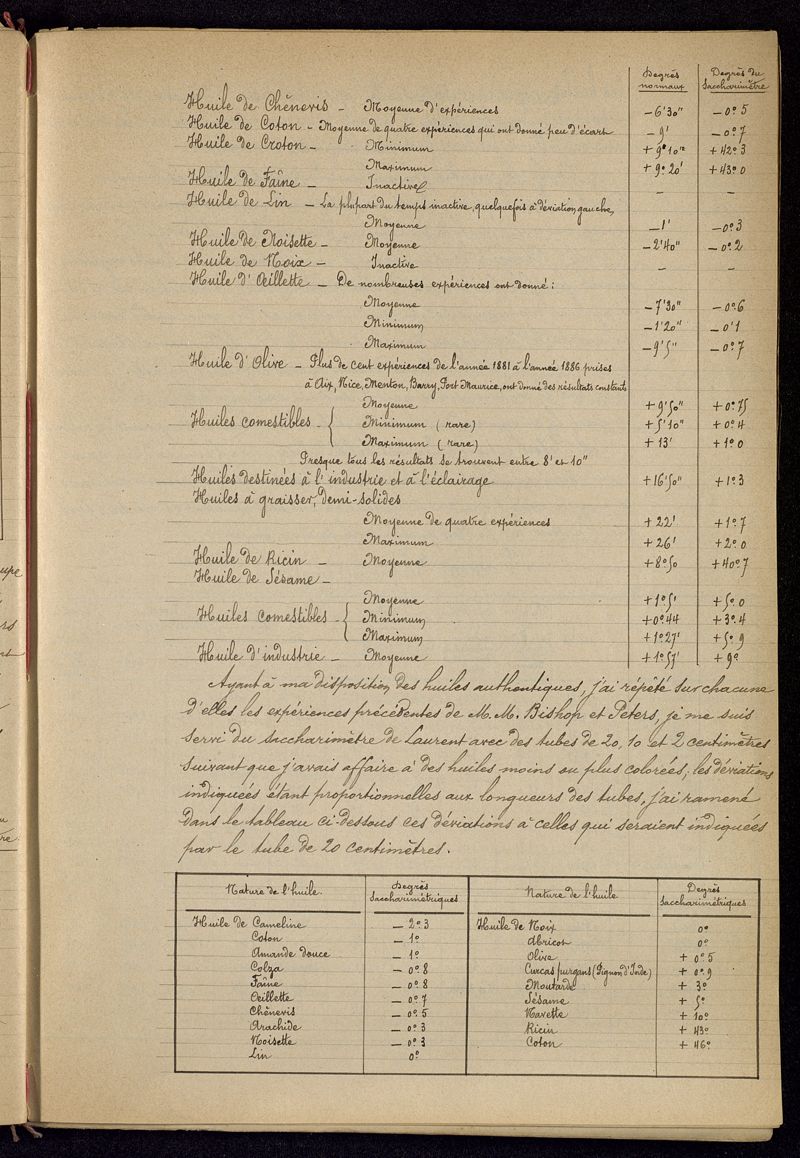 Degrés normaux	Degrés du Saccharimètre
Huile de Chênevis – Moyenne d'expériences	– 6'30"	– 0°5
Huile de Coton – Moyenne de quatre expériences qui ont donné peu d'écart	– 9'	– 0°7
Huile de Croton – Minimum	+ 9°10'	+ 42°3
Maximum	+ 9°20'	+ 43°0
Huile de Faîne – Inactive	–	–
Huile de Lin – La plupart du temps inactive, quelquefois à déviation gauche,
Moyenne	– 1'	– 0°3
Huile de Noisette – Moyenne	– 2'40"	– 0°2
Huile de Noix – Inactive	–	–
Huile d'Œillette – De nombreuses expériences ont donné :
Moyenne	– 7'30"	– 0°6
Minimum	– 1'20"	– 0°1
Maximum	– 9'5"	– 0°7
Huile d'Olive – Plus de cent expériences de l'année 1881 à l'année 1886 prises
à Aix, Nice, Menton, Barry, Port Maurice, ont donné des résultats constants
Moyenne	+ 9'50"	+ 0°75
Huiles comestibles – { Minimum (rare)	+ 5'10"	+ 0°4
Maximum (rare)	+ 13'	+ 1°0
Presque tous les résultats se trouvent entre 8' et 10"
Huiles destinées à l'industrie et à l'éclairage	+ 16'50"	+ 1°3
Huiles à graisser, demi-solides
Moyenne de quatre expériences	+ 22'	+ 1°7
Maximum	+ 26'	+ 2°0
Huile de Ricin – Moyenne	+ 8°50	+ 40°7
Huile de Sésame –
Moyenne	+ 1°5'	+ 5°0
Huiles comestibles – { Minimum	+ 0°44	+ 3°4
Maximum	+ 1°27'	+ 5°9
Huile d'industrie – Moyenne	+ 1°57'	+ 9°
Ayant à ma disposition des huiles authentiques, j'ai répêté sur chacune
d'elles les expériences précédentes de M.M. Bishop et Peters, je me suis
servi du saccharimètre de Laurent avec des tubes de 20, 10 et 2 centimètres
suivant que j'avais affaire à des huiles moins ou plus colorées, les déviations
indiquées étant proportionnelles aux longueurs des tubes, j'ai ramené
dans le tableau ci-dessous ces déviations à celles qui seraient indiquées
par le tube de 20 centimètres.
Nature de l'huile.	Degrés Saccharimétriques	Nature de l'huile	Degrés Saccharimétriques
Huile de Cameline	– 2°3	Huile de Noix	0°
Coton	– 1°	Abricot	0°
Amande douce	– 1°	Olive	+ 0°5
Colza	– 0°8	Curcas purgans (Pignon d'Inde)	+ 0°9
Faîne	– 0°8	Moutarde	+ 3°
Œillette	– 0°7	Sésame	+ 5°
Chênevis	– 0°5	Navette	+ 10°
Arachide	– 0°3	Ricin	+ 43°
Noisette	– 0°3	Coton	+ 46°
Lin	0°